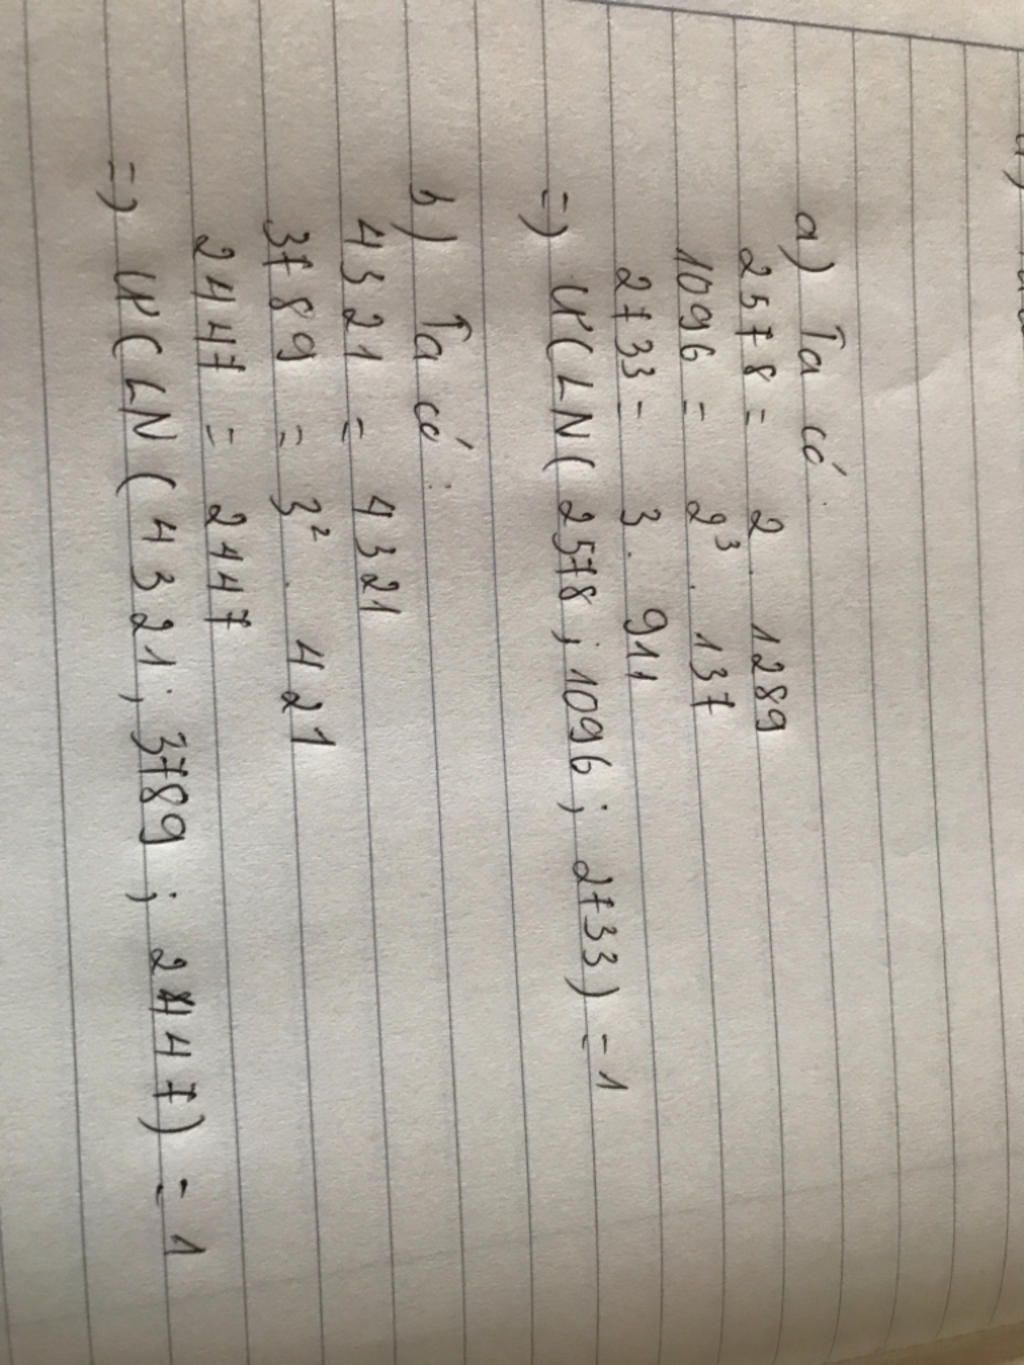 a) Ta có:
2578 = 2 . 1289
1096 = 2³ . 137
2733 = 3 . 911
=) ƯCLN( 2578 ; 1096 ; 2733) = 1
b) Ta có :
4321 = 4321
3789 = 3² . 421
2447 = 2447
=) ƯCLN( 4321 ; 3789 ; 2447) = 1